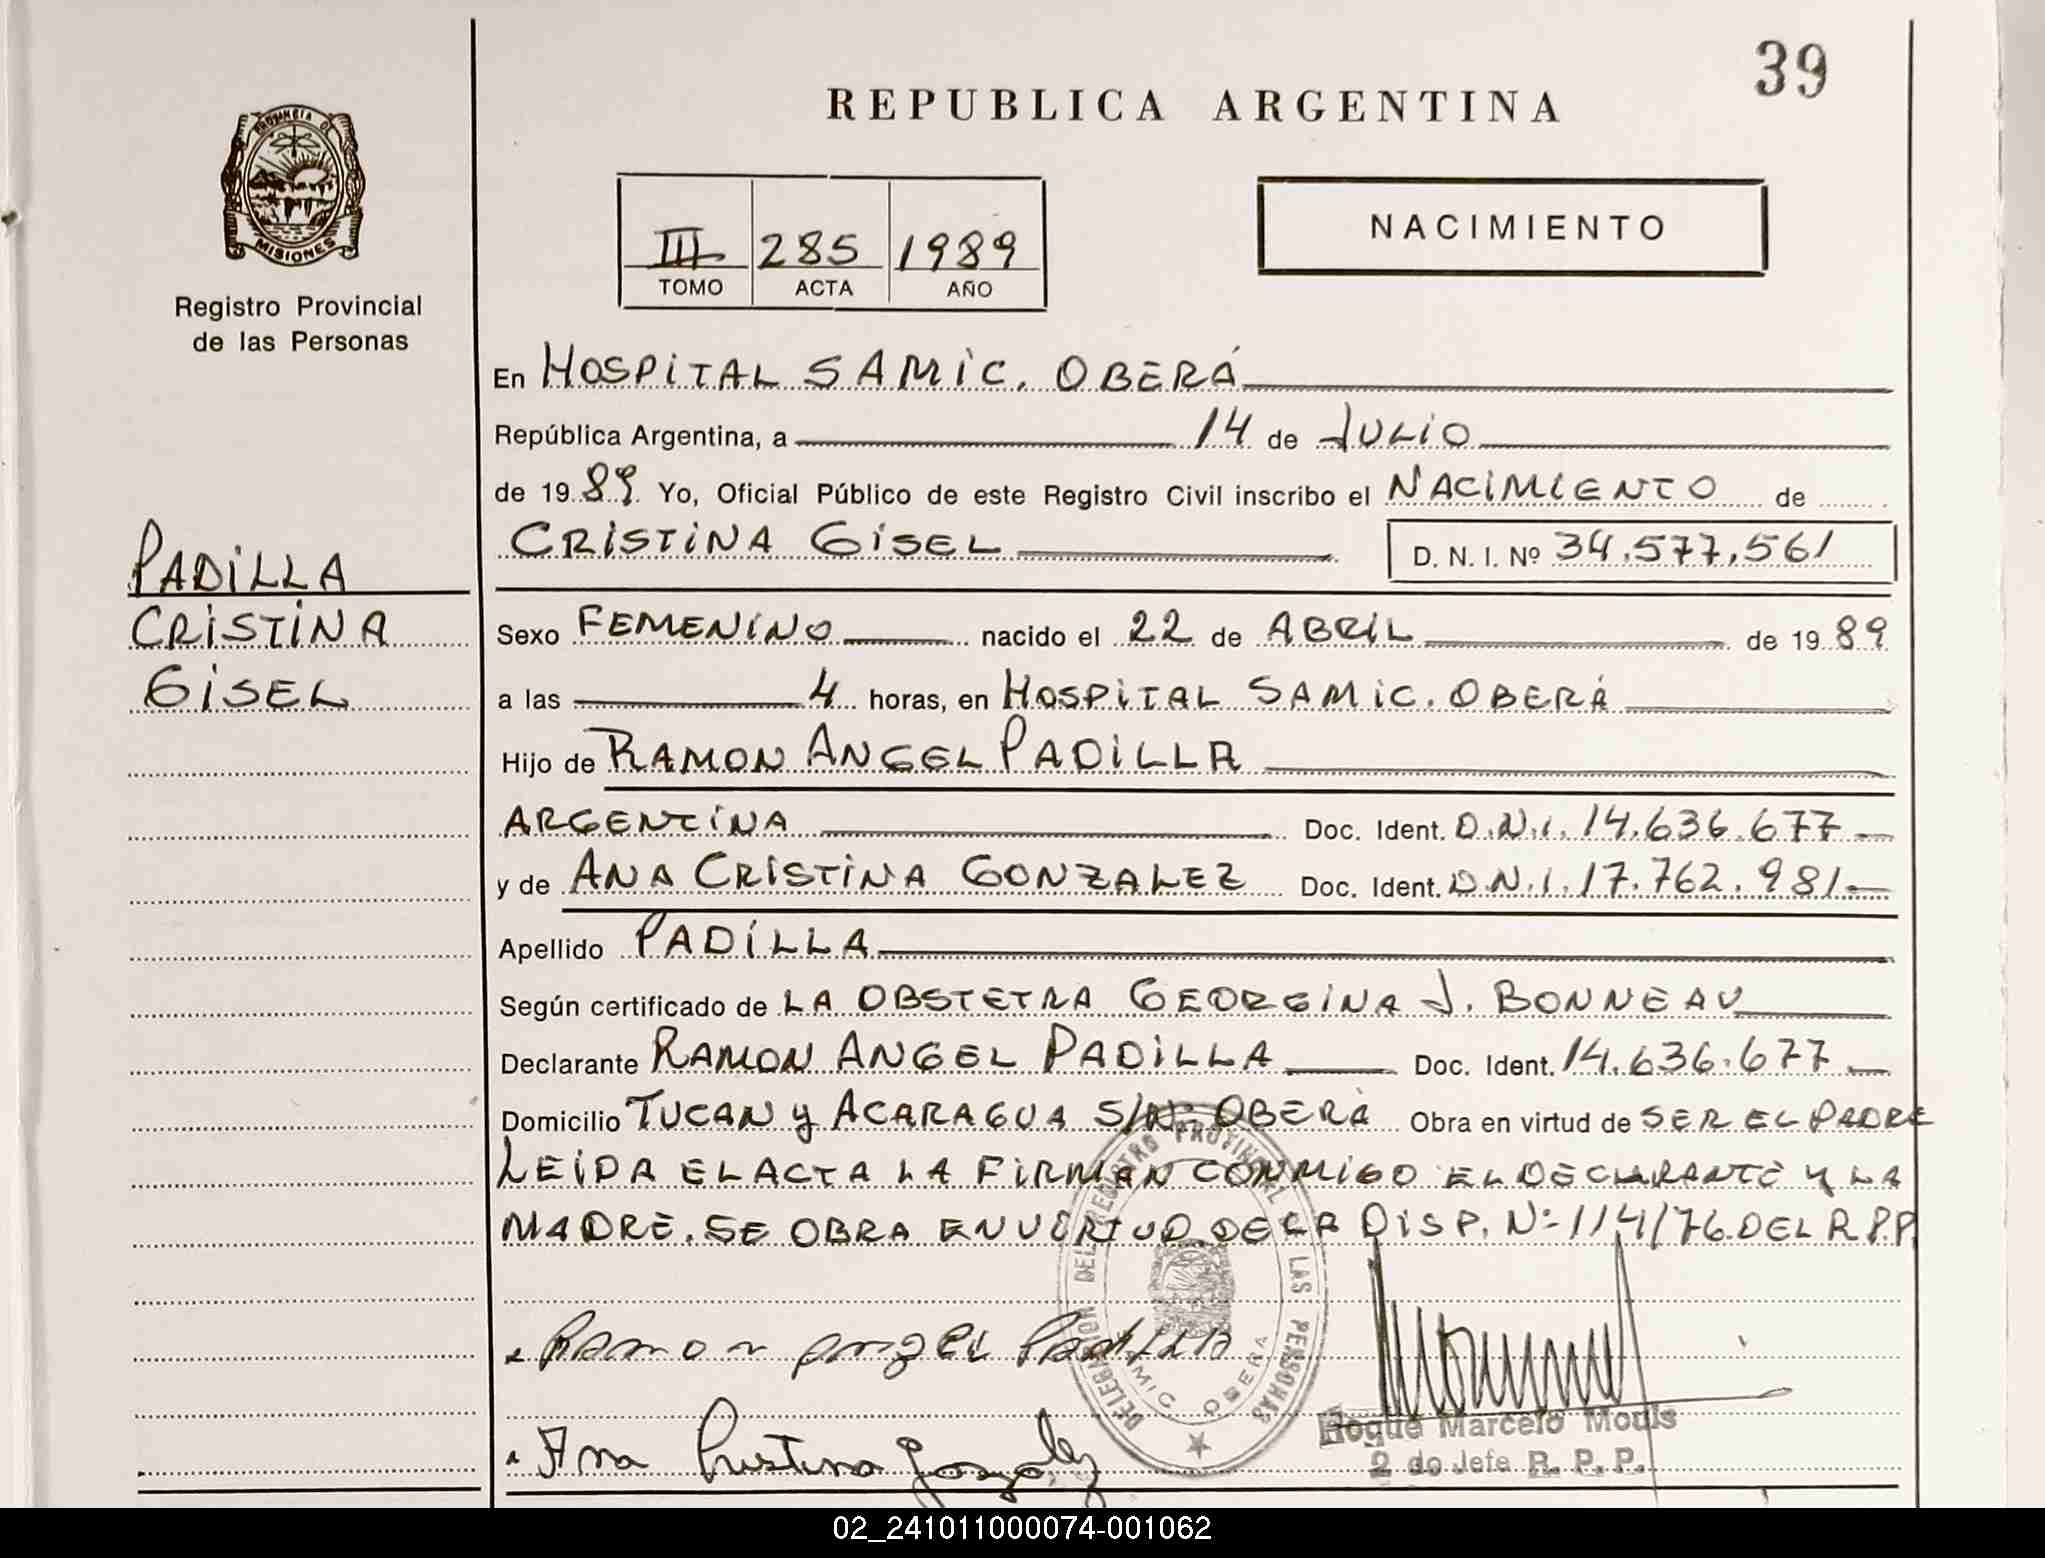 39
REPUBLICA ARGENTINA
PROVINCIA DE
MISIONES
Registro Provincial
de las Personas
III 285 1989
TOMO ACTA AÑO
NACIMIENTO
En HOSPITAL SAMIC. OBERÁ
República Argentina, a 14 de JULIO
de 1989 Yo, Oficial Público de este Registro Civil inscribo el NACIMIENTO de
CRISTINA GISEL D. N. I. Nº 34.577.561
PADILLA
CRISTINA
GISEL
Sexo FEMENINO nacido el 22 de ABRIL de 1989
a las 4 horas, en HOSPITAL SAMIC. OBERÁ
Hijo de RAMON ANGEL PADILLA
ARGENTINA Doc. Ident. D.N.I. 14.636.677
y de ANA CRISTINA GONZALEZ Doc. Ident. D.N.I. 17.762.981
Apellido PADILLA
Según certificado de LA OBSTETRA GEORGINA J. BONNEAU
Declarante RAMON ANGEL PADILLA Doc. Ident. 14.636.677
Domicilio TUCAN y ACARAGUA S/Nº OBERÁ Obra en virtud de SER EL PADRE
LEIDA EL ACTA LA FIRMAN CONMIGO EL DECLARANTE Y LA
MADRE. SE OBRA EN VIRTUD DE LA DISP. Nº 114/76 DEL R.P.P.
DELEGACION DEL REGISTRO PROVINCIAL DE LAS PERSONAS
SAMIC OBERA
Ramon angel Padilla
Ana Cristina Gonzalez
Roque Marcelo Mouls
2 do Jefe R. P. P.
02_241011000074-001062